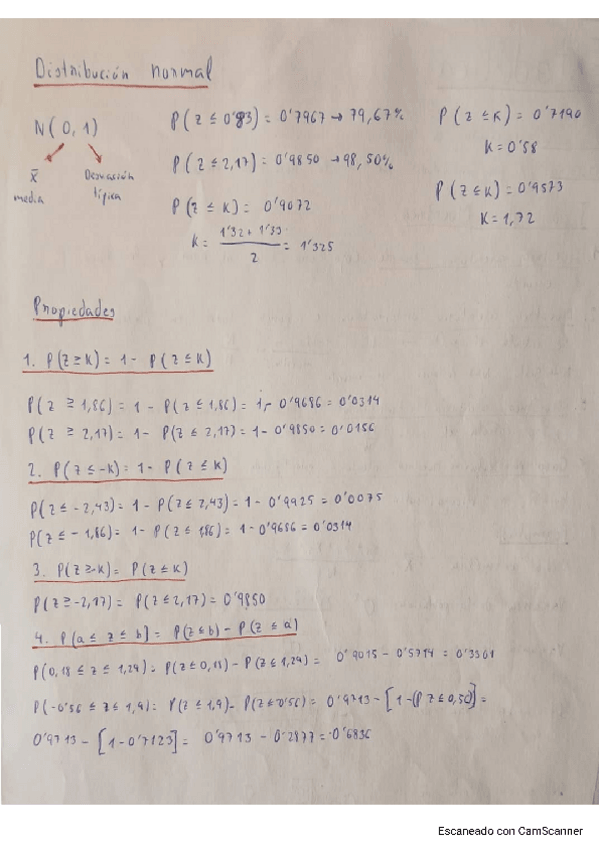 Distribución normal
N(0,1)
x̄ media
Desviación típica
P(z ≤ 0'83) = 0'7967 → 79,67%
P(z ≤ 2,17) = 0'9850 → 98,50%
P(z ≤ K) = 0'9072
K = (1'32 + 1'33) / 2 = 1'325
P(z ≤ K) = 0'7190
K = 0'58
P(z ≤ K) = 0'9573
K = 1,72
Propiedades
1. P(z ≥ K) = 1 - P(z ≤ K)
P(z ≥ 1,86) = 1 - P(z ≤ 1,86) = 1 - 0'9686 = 0'0314
P(z ≥ 2,17) = 1 - P(z ≤ 2,17) = 1 - 0'9850 = 0'0156
2. P(z ≤ -K) = 1 - P(z ≤ K)
P(z ≤ -2,43) = 1 - P(z ≤ 2,43) = 1 - 0'9925 = 0'0075
P(z ≤ -1,86) = 1 - P(z ≤ 1,86) = 1 - 0'9686 = 0'0314
3. P(z ≥ -K) = P(z ≤ K)
P(z ≥ -2,17) = P(z ≤ 2,17) = 0'9850
4. P(a ≤ z ≤ b] = P(z ≤ b) - P(z ≤ a)
P(0,18 ≤ z ≤ 1,29) = P(z ≤ 0,18) - P(z ≤ 1,29) = 0'9015 - 0'5714 = 0'3301
P(-0'56 ≤ z ≤ 1,9) = P(z ≤ 1,9) - P(z ≤ 0'56) = 0'9713 - [1 - (P z ≤ 0,56)] =
0'9713 - [1 - 0'7123] = 0'9713 - 0'2877 = 0'6836
Escaneado con CamScanner